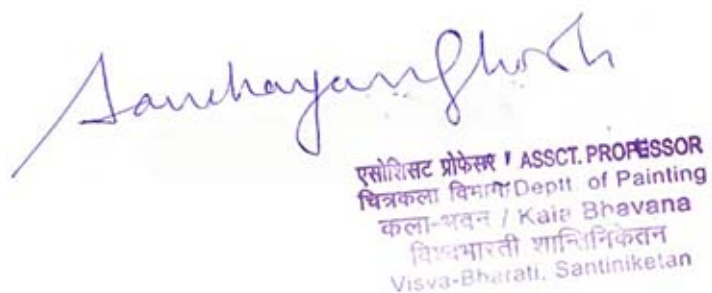 Sanchayan Ghosh
एसोशिसट प्रोफेसर / ASSCT. PROFESSOR
चित्रकला विभाग/Deptt. of Painting
कला-भवन / Kala Bhavana
विश्वभारती शान्तिनिकेतन
Visva-Bharati, Santiniketan